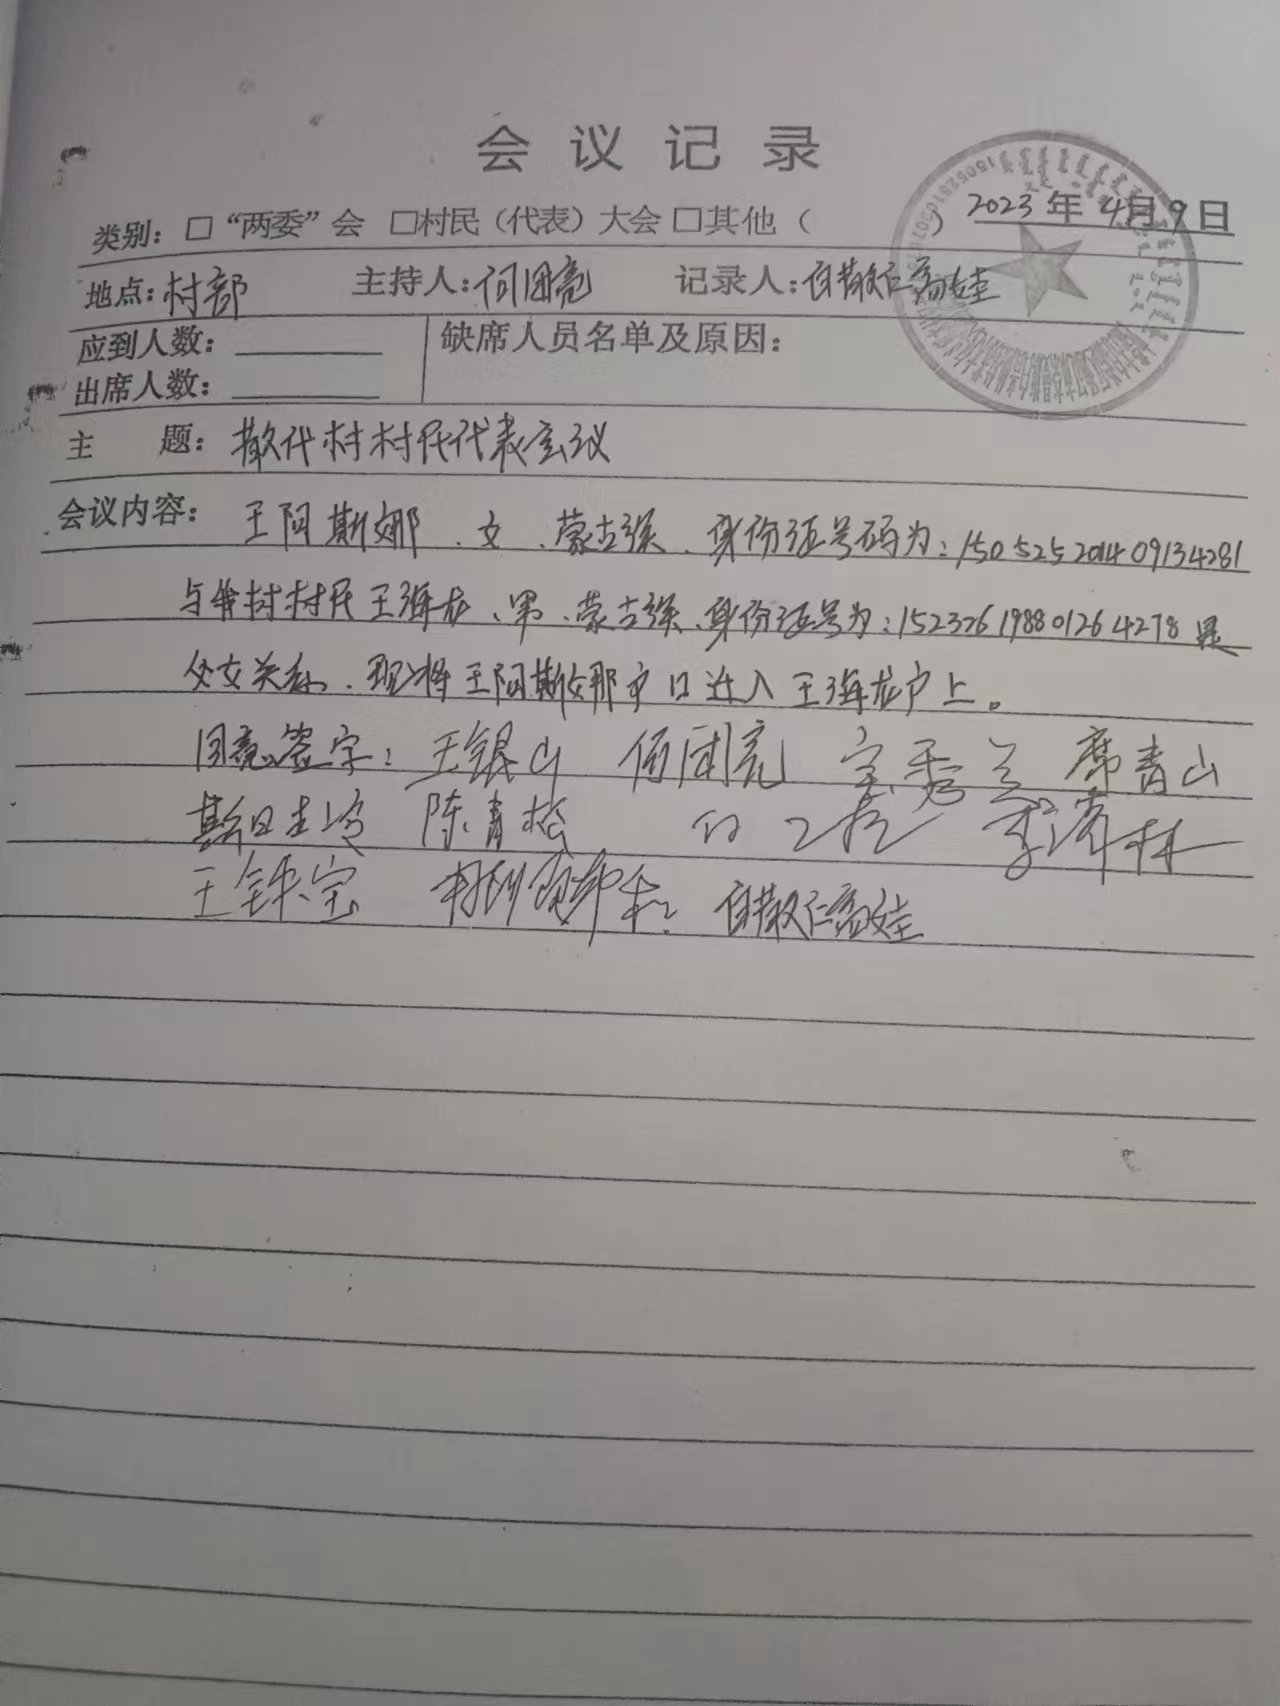 会议记录
类别：□“两委”会 □村民（代表）大会 □其他（ ） 2023年4月9日
地点：村部 主持人：何团亮 记录人：白散仁高娃
应到人数： 缺席人员名单及原因：
出席人数：
主 题：散代村村民代表会议
会议内容：王阿斯娜、女、蒙古族、身份证号码为：150525201409134281
与我村村民王海龙、男、蒙古族、身份证号为：152326198801264278是
父女关系、现将王阿斯娜户口迁入王海龙户上。
同意签字：王银山 何团亮 宝秀兰 席青山
斯日古冷 陈青松
王铁宝 白散仁高娃